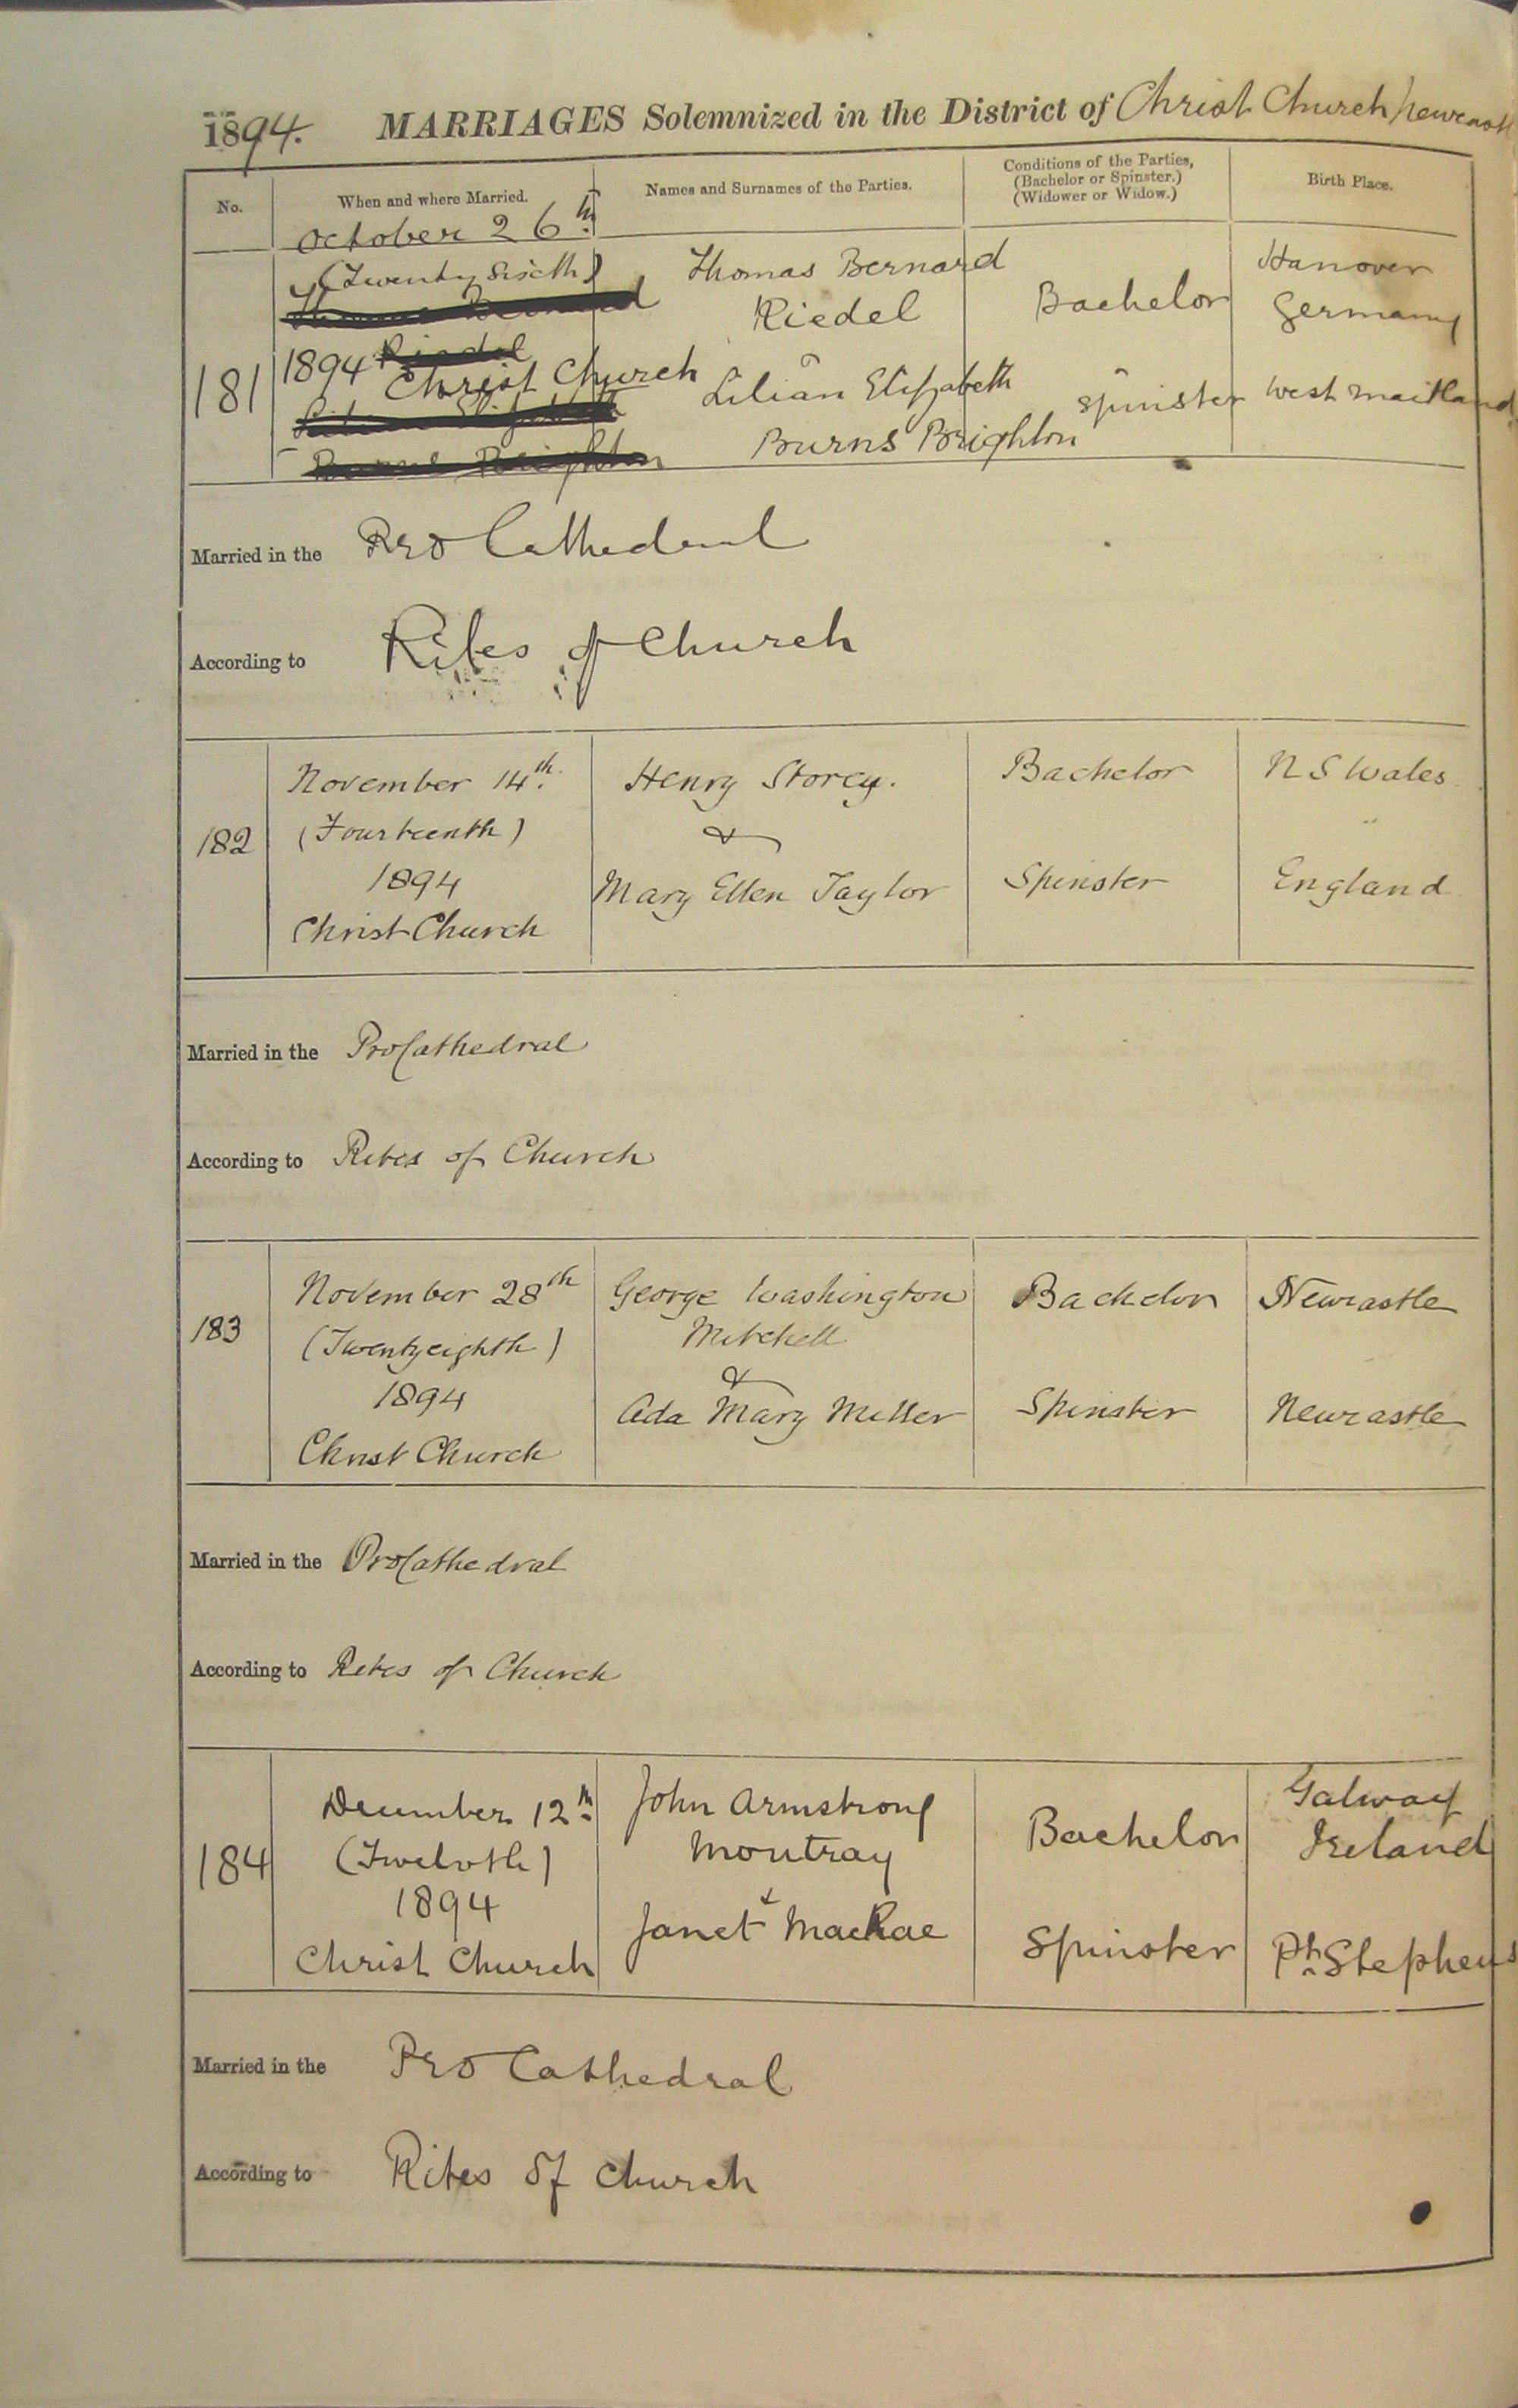 1894. MARRIAGES Solemnized in the District of Christ Church Newcastle
No. When and where Married. Names and Surnames of the Parties. Conditions of the Parties, (Bachelor or Spinster.) (Widower or Widow.) Birth Place.
181
October 26th
(Twenty Sixth)
Thomas Bernard
1894 Riedel
Christ Church
Lilian Elizabeth
Burns Brighton
Thomas Bernard
Riedel
Lilian Elizabeth
Burns Brighton
Bachelor
Spinster
Hanover
Germany
West Maitland
Married in the Pro Cathedral
According to Rites of Church
182
November 14th.
(Fourteenth)
1894
Christ Church
Henry Storey.
&
Mary Ellen Taylor
Bachelor
Spinster
N S Wales
England
Married in the ProCathedral
According to Rites of Church
183
November 28th
(Twentyeighth)
1894
Christ Church
George Washington
Mitchell
&
Ada Mary Miller
Bachelor
Spinster
Newcastle
Newcastle
Married in the ProCathedral
According to Rites of Church
184
December 12th
(Twelvth)
1894
Christ Church
John Armstrong
Montray
&
Janet MacRae
Bachelor
Spinster
Galway
Ireland
Pt. Stephens
Married in the Pro Cathedral
According to Rites of Church